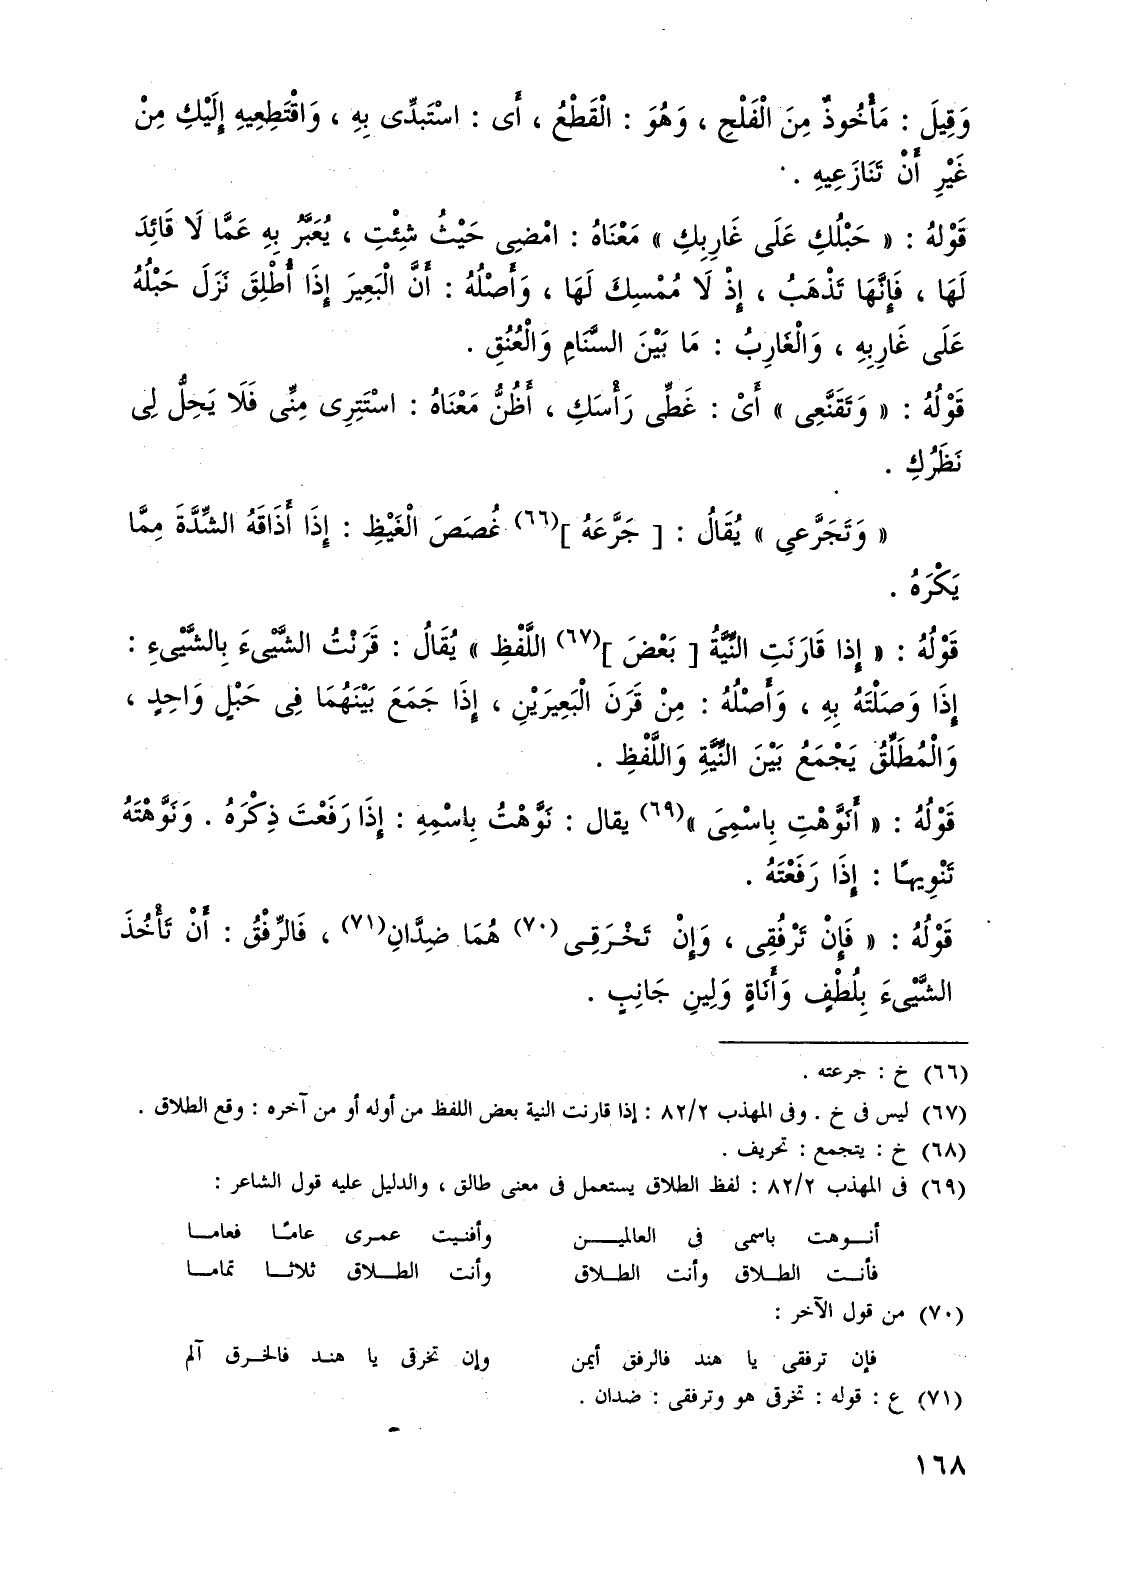 وَقِيلَ : مَأْخُوذٌ مِنَ الْفَلْحِ ، وَهُوَ : الْقَطْعُ ، أَى : اسْتَبِدِّى بِهِ ، وَاقْتَطِعِيهِ إِلَيْكِ مِنْ
غَيْرِ أَنْ تَنَازَعِيهِ .
قَوْلهُ : « حَبْلُكِ عَلَى غَارِبِكِ » مَعْنَاهُ : امْضِى حَيْثُ شِئْتِ ، يُعَبَّرُ بِهِ عَمَّا لَا قَائِدَ
لَهَا ، فَإِنَّهَا تَذْهَبُ ، إِذْ لَا مُمْسِكَ لَهَا ، وَأَصْلُهُ : أَنَّ الْبَعِيرَ إِذَا أُطْلِقَ نَزَلَ حَبْلُهُ
عَلَى غَارِبِهِ ، وَالْغَارِبُ : مَا بَيْنَ السَّنَامِ وَالْعُنُقِ .
قَوْلُهُ : « وَتَقَنَّعِى » أَىْ : غَطِّى رَأْسَكِ ، أَظُنُّ مَعْنَاهُ : اسْتَتِرِى مِنِّى فَلَا يَحِلُّ لِى
نَظَرُكِ .
« وَتَجَرَّعىِ » يُقَالُ : [ جَرَّعَهُ ](٦٦) غُصَصَ الْغَيْظِ : إِذَا أَذَاقَهُ الشِّدَّةَ مِمَّا
يَكْرَهُ .
قَوْلُهُ : « إِذا قَارَنَتِ النِّيَّةُ [ بَعْضَ ](٦٧) اللَّفْظِ » يُقَالُ : قَرَنْتُ الشَّيْىءَ بِالشَّيْىءِ :
إِذَا وَصَلْتَهُ بِهِ ، وَأَصْلُهُ : مِنْ قَرَنَ الْبَعِيرَيْنِ ، إِذَا جَمَعَ بَيْنَهُمَا فِى حَبْلٍ وَاحِدٍ ،
وَالْمُطَلِّقُ يَجْمَعُ بَيْنَ النِّيَّةِ وَاللَّفْظِ .
قَوْلُهُ : « أَنَوَّهْتِ بِاسْمِىَ »(٦٩) يقال : نَوَّهْتُ بِاسْمِهِ : إِذَا رَفَعْتَ ذِكْرَهُ . وَنَوَّهْتَهُ
تَنْوِيهًا : إِذَا رَفَعْتَهُ .
قَوْلُهُ : « فَإِنْ تَرْفُقِى ، وَإِنْ تَخْرَقِى(٧٠) هُمَا ضِدَّانِ(٧١) ، فَالرِّفْقُ : أَنْ تَأْخُذَ
الشَّيْىءَ بِلُطْفٍ وَأَنَاةٍ وَلِينِ جَانِبٍ .
(٦٦) خ : جرعته .
(٦٧) ليس فى خ . وفى المهذب ٨٢/٢ : إذا قارنت النية بعض اللفظ من أوله أو من آخره : وقع الطلاق .
(٦٨) خ : يتجمع : تحريف .
(٦٩) فى المهذب ٨٢/٢ : لفظ الطلاق يستعمل فى معنى طالق ، والدليل عليه قول الشاعر :
أنـوهت باسمى فى العالميـــن وأفنيت عمرى عامًا فعامـا
فأنـت الطـلاق وأنت الطـلاق وأنت الطـلاق ثلاثـا تمامـا
(٧٠) من قول الآخر :
فإن ترفقى يا هند فالرفق أيمن وإن تخرقى يا هنـد فالخـرق آلم
(٧١) ع : قوله : تخرقى هو وترفقى : ضدان .
١٦٨